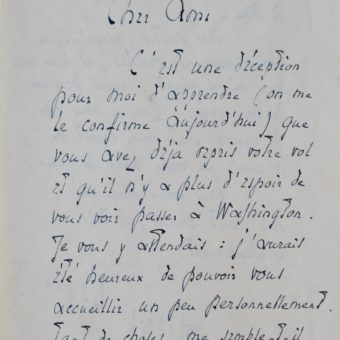 Cher Ami
C'est une déception
pour moi d'apprendre (on me
le confirme aujourd'hui) que
vous avez déjà repris votre vol
et qu'il n'y a plus d'espoir de
vous voir passer à Washington.
Je vous y attendais : j'aurais
été heureux de pouvoir vous
accueillir un peu personnellement.
Tant de choses, me semble-t-il